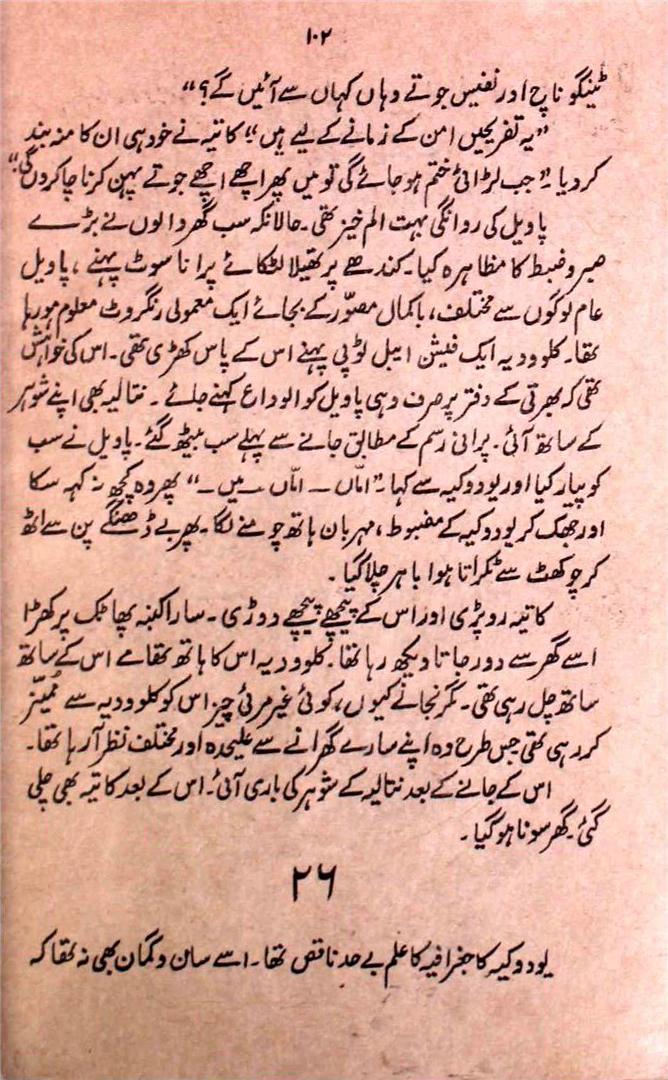 ۱۰۲
ٹینگو ناچ اور نفیس جوتے وہاں کہاں سے آئیں گے؟“
”یہ تفریحیں امن کے زمانے کے لیے ہیں“ کاتیہ نے خود ہی ان کا منہ بند
کر دیا۔ ”جب لڑائی ختم ہو جائے گی تو میں پھر اچھے اچھے جوتے پہن کر ناچا کروں گی“
پاویل کی روانگی بہت الم خیز تھی۔ حالانکہ سب گھر والوں نے بڑے
صبر و ضبط کا مظاہرہ کیا۔ کندھے پر تھیلا لٹکائے پرانا سوٹ پہنے، پاویل
عام لوگوں سے مختلف، باکمال مصوّر کے بجائے ایک معمولی رنگروٹ معلوم ہو رہا
تھا۔ کلوودیہ ایک فیشن ایبل ٹوپی پہنے اس کے پاس کھڑی تھی۔ اس کی خواہش
تھی کہ بھرتی کے دفتر پر صرف وہی پاویل کو الوداع کہنے جائے۔ نتالیہ بھی اپنے شوہر
کے ساتھ آئی۔ پرانی رسم کے مطابق جانے سے پہلے سب بیٹھ گئے۔ پاویل نے سب
کو پیار کیا اور یودوکیہ سے کہا۔ ”امّاں — امّاں — میں —“ پھر وہ کچھ نہ کہہ سکا
اور جھک کر یودوکیہ کے مضبوط، مہربان ہاتھ چومنے لگا۔ پھر بے ڈھنگے پن سے اٹھ
کر چوکھٹ سے ٹکراتا ہوا باہر چلا گیا۔
کاتیہ رو پڑی اور اس کے پیچھے پیچھے دوڑی۔ سارا کنبہ پھاٹک پر کھڑا
اسے گھر سے دور جاتا دیکھ رہا تھا۔ کلوودیہ اس کا ہاتھ تھامے اس کے ساتھ
ساتھ چل رہی تھی۔ مگر نجانے کیوں، کوئی غیر مرئی چیز اس کو کلوودیہ سے مُمیّز
کر رہی تھی جس طرح وہ اپنے سارے گھرانے سے علیحدہ اور مختلف نظر آ رہا تھا۔
اس کے جانے کے بعد نتالیہ کے شوہر کی باری آئی۔ اس کے بعد کاتیہ بھی چلی
گئی۔ گھر سونا ہو گیا۔
۲۶
یودوکیہ کا جغرافیہ کا علم بے حد ناقص تھا۔ اسے سان و گمان بھی نہ تھا کہ